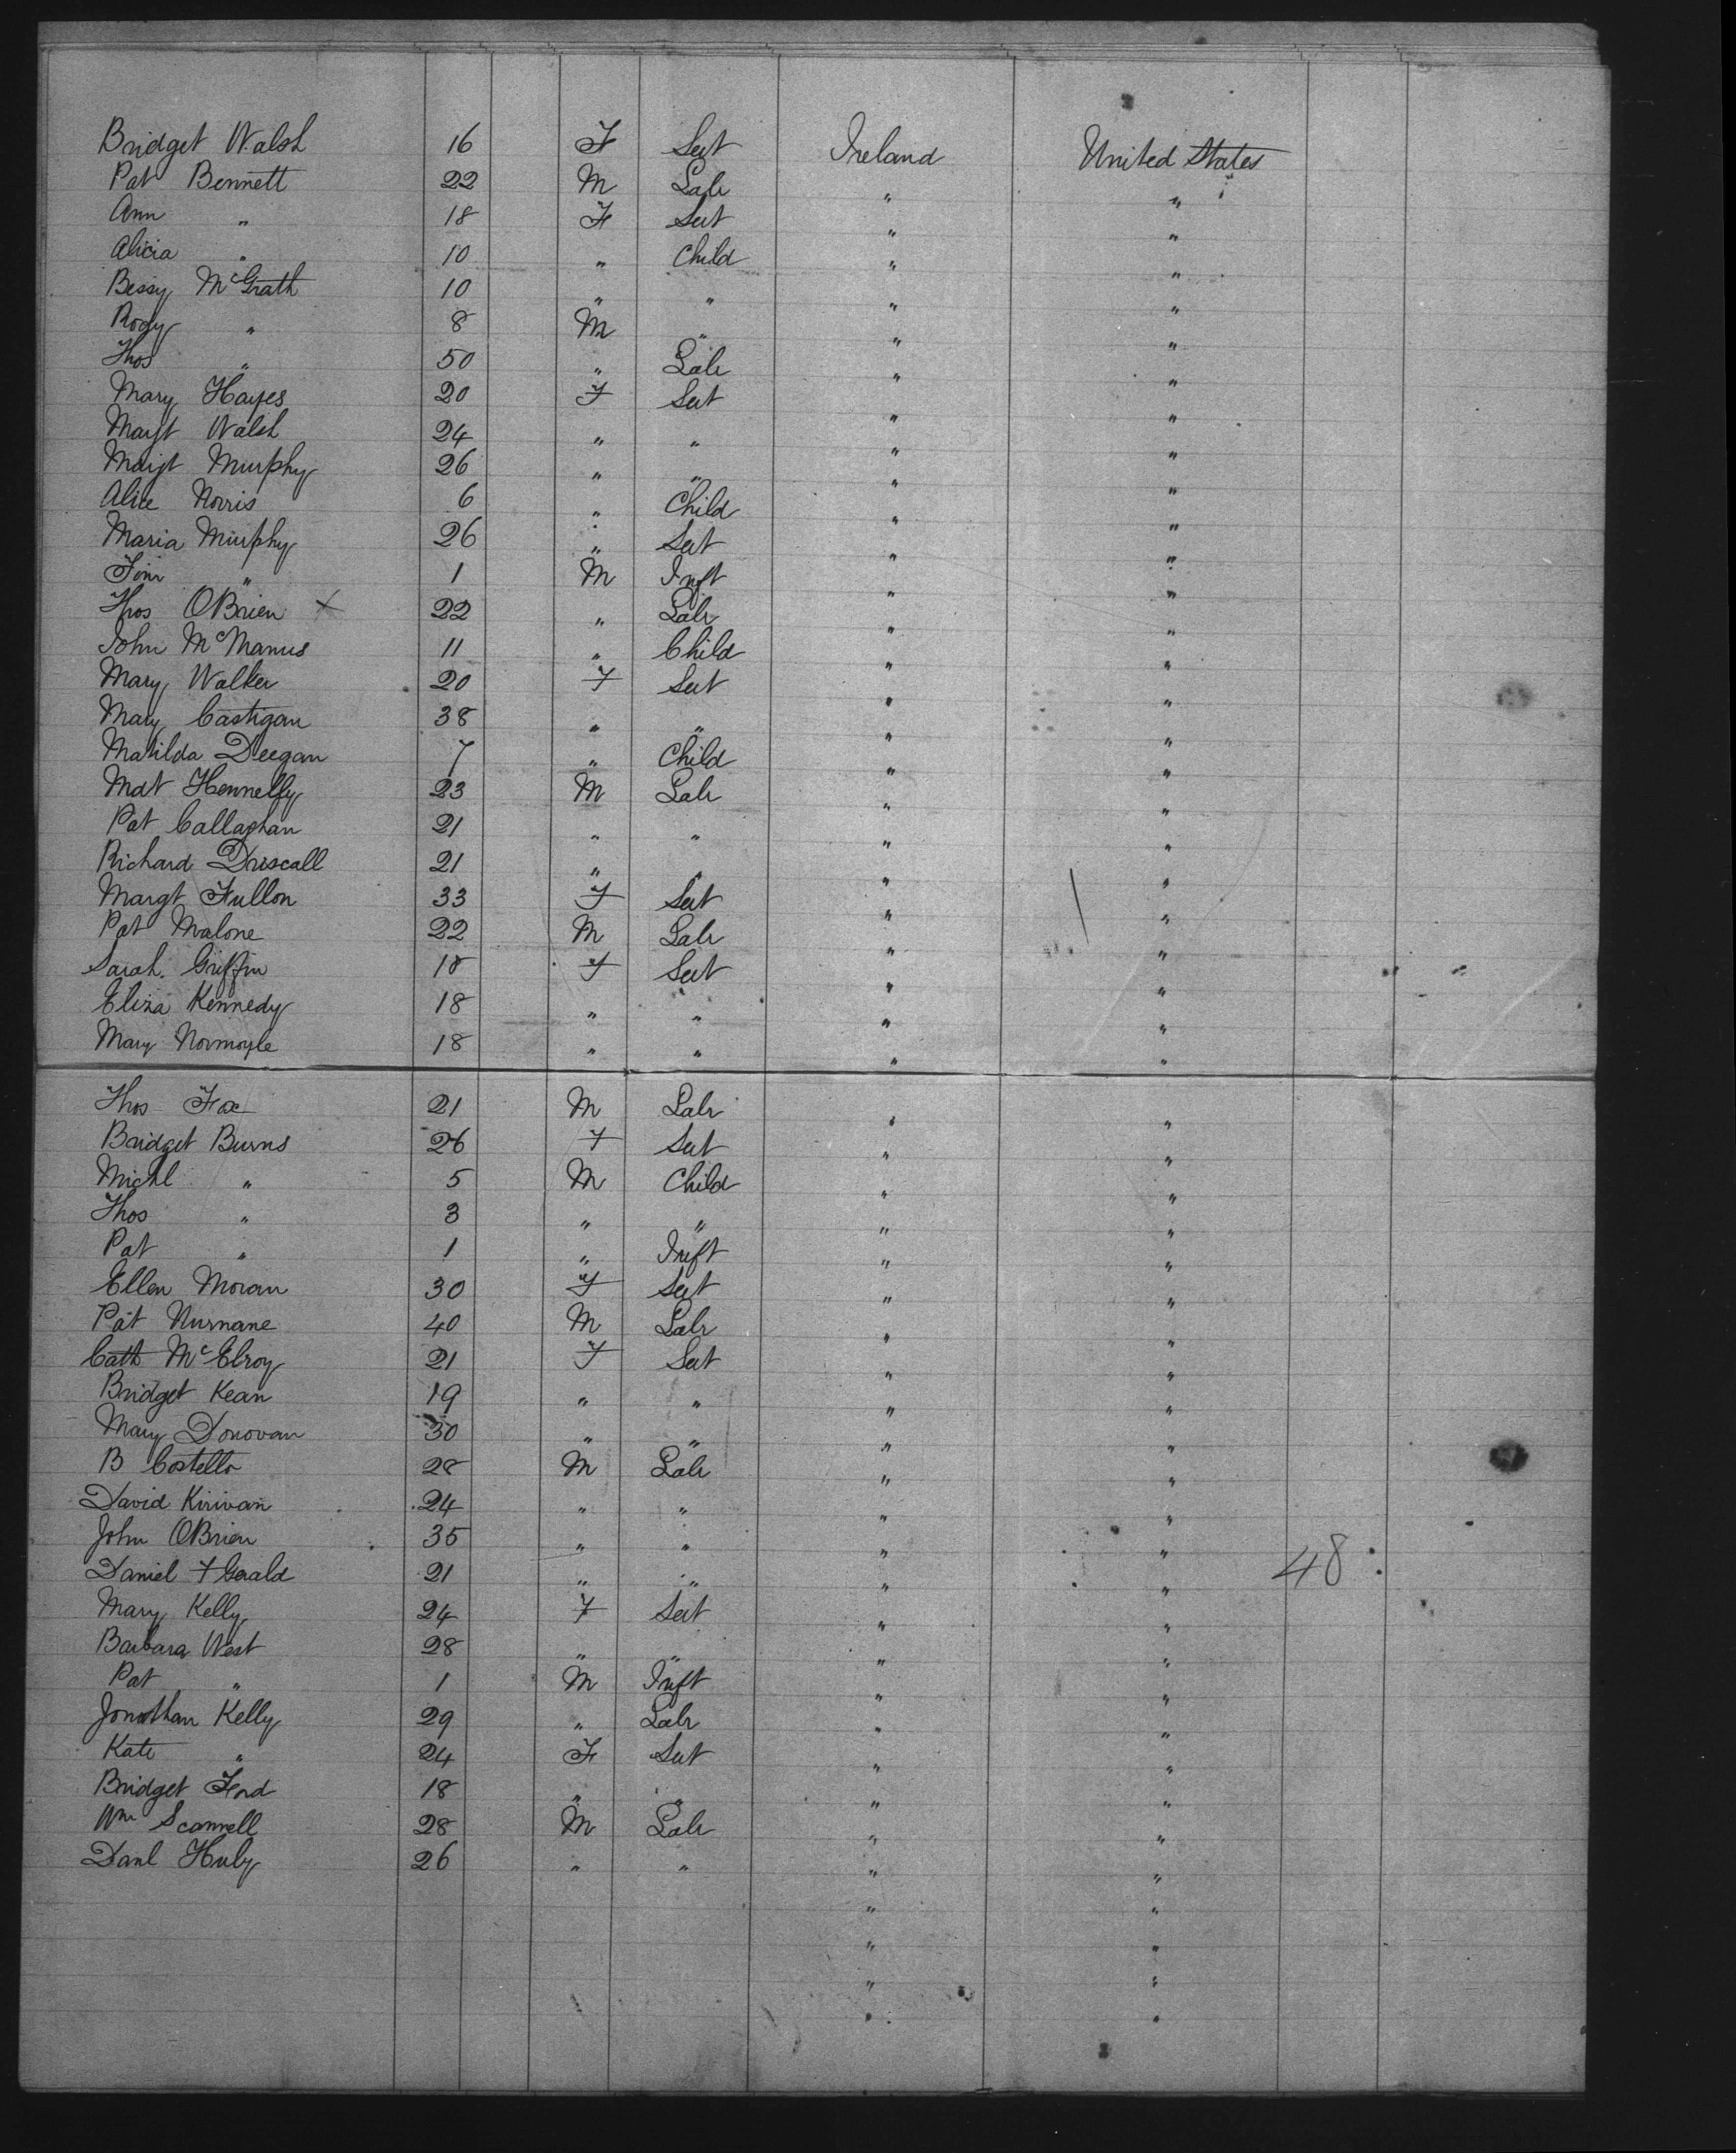 Bridget Walsh 16 F Sert Ireland United States
Pat Bennett 22 M Labr " "
Ann " 18 F Sert " "
Alicia " 10 " Child " "
Bessy McGrath 10 " " " "
Rody " 8 M " " "
Thos " 50 " Labr " "
Mary Hayes 20 F Sert " "
Margt Walsh 24 " " " "
Margt Murphy 26 " " " "
Alice Norris 6 " Child " "
Maria Murphy 26 " Sert " "
Tim " 1 M Inft " "
Thos OBrien × 22 " Labr " "
John McManus 11 " Child " "
Mary Walker 20 F Sert " "
Mary Castigan 38 " " " "
Matilda Deegan 7 " Child " "
Mat Hennelly 23 M Labr " "
Pat Callaghan 21 " " " "
Richard Driscall 21 " " " "
Margt Fullon 33 F Sert " "
Pat Malone 22 M Labr " "
Sarah Griffin 18 F Sert " "
Eliza Kennedy 18 " " " "
Mary Normoyle 18 " " " "
Thos Fox 21 M Labr " "
Bridget Burns 26 F Sert " "
Michl " 5 M Child " "
Thos " 3 " " " "
Pat " 1 " Inft " "
Ellen Moran 30 F Sert " "
Pat Nurnane 40 M Labr " "
Cath McElroy 21 F Sert " "
Bridget Kean 19 " " " "
Mary Donovan 30 " " " "
B Costello 28 M Labr " "
David Kirivan 24 " " " "
John OBrien 35 " " " "
Daniel F Gerald 21 " " " " 48
Mary Kelly 24 F Sert " "
Barbara West 28 " " " "
Pat " 1 M Inft " "
Jonathan Kelly 29 " Labr " "
Kate " 24 F Sert " "
Bridget Ford 18 " " " "
Wm Scannell 28 M Labr " "
Danl Huly 26 " " " "
" "
" "
" "
" "